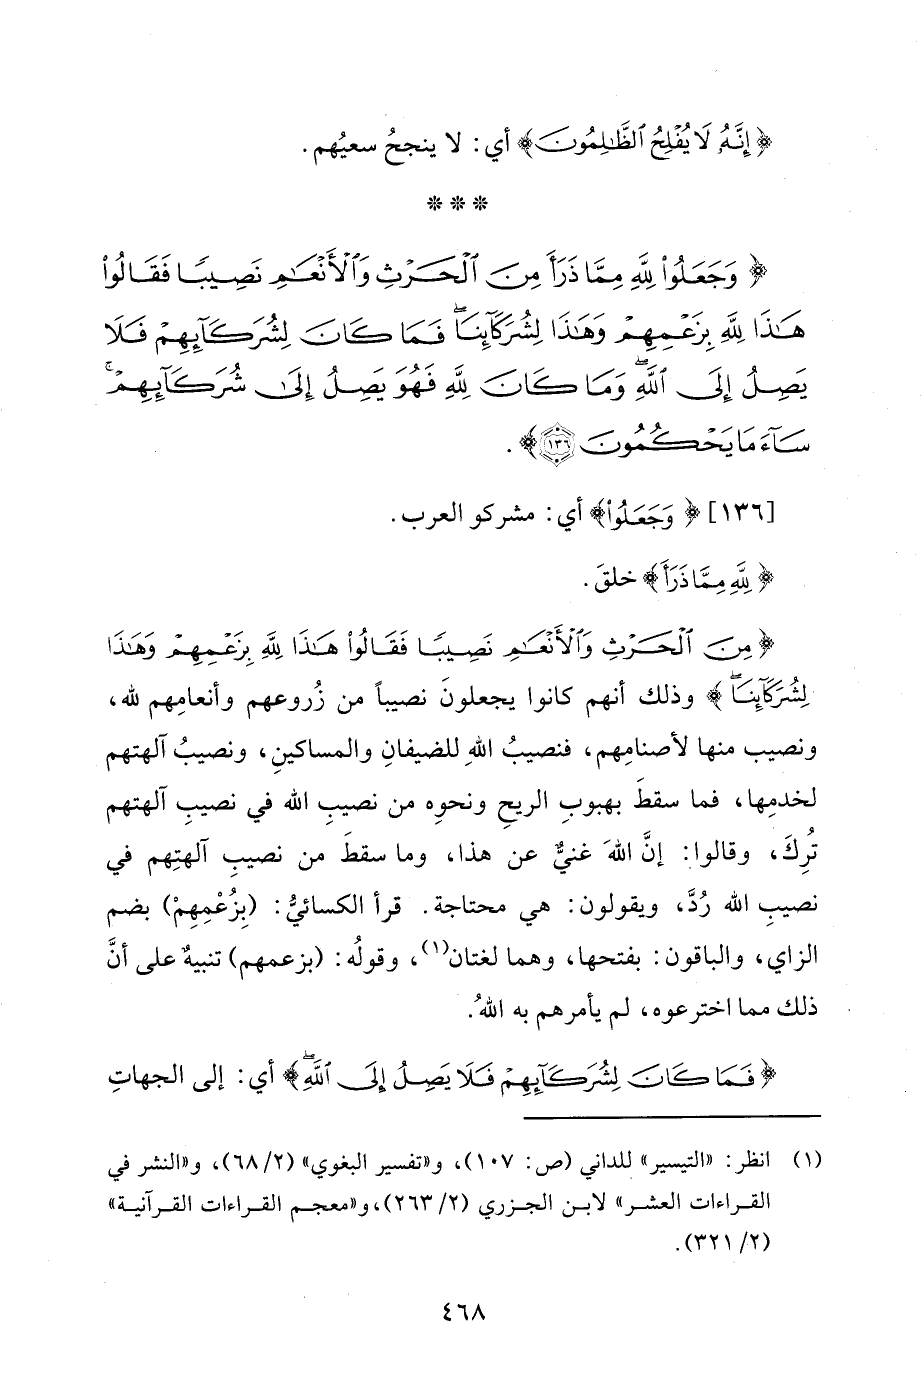 ﴿إِنَّهُۥ لَا يُفْلِحُ ٱلظَّٰلِمُونَ﴾ أي: لا ينجحُ سعيُهم.
* * *
﴿وَجَعَلُوا۟ لِلَّهِ مِمَّا ذَرَأَ مِنَ ٱلْحَرْثِ وَٱلْأَنْعَٰمِ نَصِيبًا فَقَالُوا۟
هَٰذَا لِلَّهِ بِزَعْمِهِمْ وَهَٰذَا لِشُرَكَآئِنَا ۖ فَمَا كَانَ لِشُرَكَآئِهِمْ فَلَا
يَصِلُ إِلَى ٱللَّهِ ۖ وَمَا كَانَ لِلَّهِ فَهُوَ يَصِلُ إِلَىٰ شُرَكَآئِهِمْ ۗ
سَآءَ مَا يَحْكُمُونَ ١٣٦﴾.
[١٣٦] ﴿وَجَعَلُوا۟﴾ أي: مشركو العرب.
﴿لِلَّهِ مِمَّا ذَرَأَ﴾ خلقَ.
﴿مِنَ ٱلْحَرْثِ وَٱلْأَنْعَٰمِ نَصِيبًا فَقَالُوا۟ هَٰذَا لِلَّهِ بِزَعْمِهِمْ وَهَٰذَا
لِشُرَكَآئِنَا ۖ﴾ وذلك أنهم كانوا يجعلونَ نصيباً من زُروعهم وأنعامِهم لله،
ونصيب منها لأصنامِهم، فنصيبُ اللهِ للضيفانِ والمساكينِ، ونصيبُ آلهتهم
لخدمِها، فما سقطَ بهبوبِ الريحِ ونحوِه من نصيبِ الله في نصيبِ آلهتهم
تُرِكَ، وقالوا: إنَّ اللهَ غنيٌّ عن هذا، وما سقطَ من نصيبِ آلهتِهم في
نصيبِ الله رُدَّ، ويقولون: هي محتاجة. قرأ الكسائيُّ: (بِزُعْمِهِمْ) بضم
الزاي، والباقون: بفتحها، وهما لغتان(١)، وقولُه: (بزعمهم) تنبيهٌ على أنَّ
ذلك مما اخترعوه، لم يأمرهم به اللهُ.
﴿فَمَا كَانَ لِشُرَكَآئِهِمْ فَلَا يَصِلُ إِلَى ٱللَّهِ ۖ﴾ أي: إلى الجهاتِ
(١) انظر: «التيسير» للداني (ص: ١٠٧)، و«تفسير البغوي» (٢/ ٦٨)، و«النشر في
القراءات العشر» لابن الجزري (٢/ ٢٦٣)، و«معجم القراءات القرآنية»
(٢/ ٣٢١).
٤٦٨